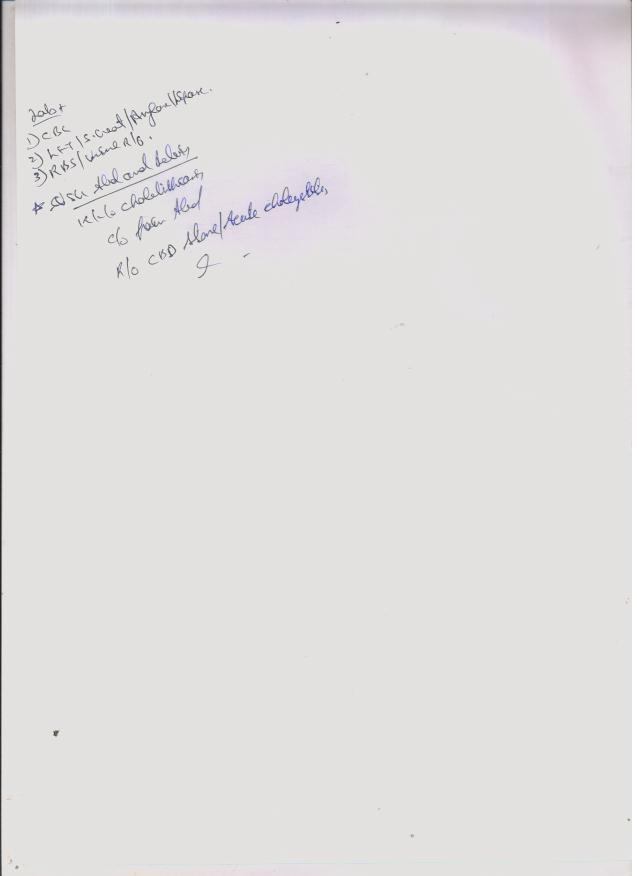 Labs
1) CBC
2) LFT/S.Creat/Amylase/Lipase.
3) RBS/Urine R/o.
USG Abd and Pelvis
K/c/o cholelithiasis
c/o pain Abd
R/o CBD stone/Acute cholecystitis